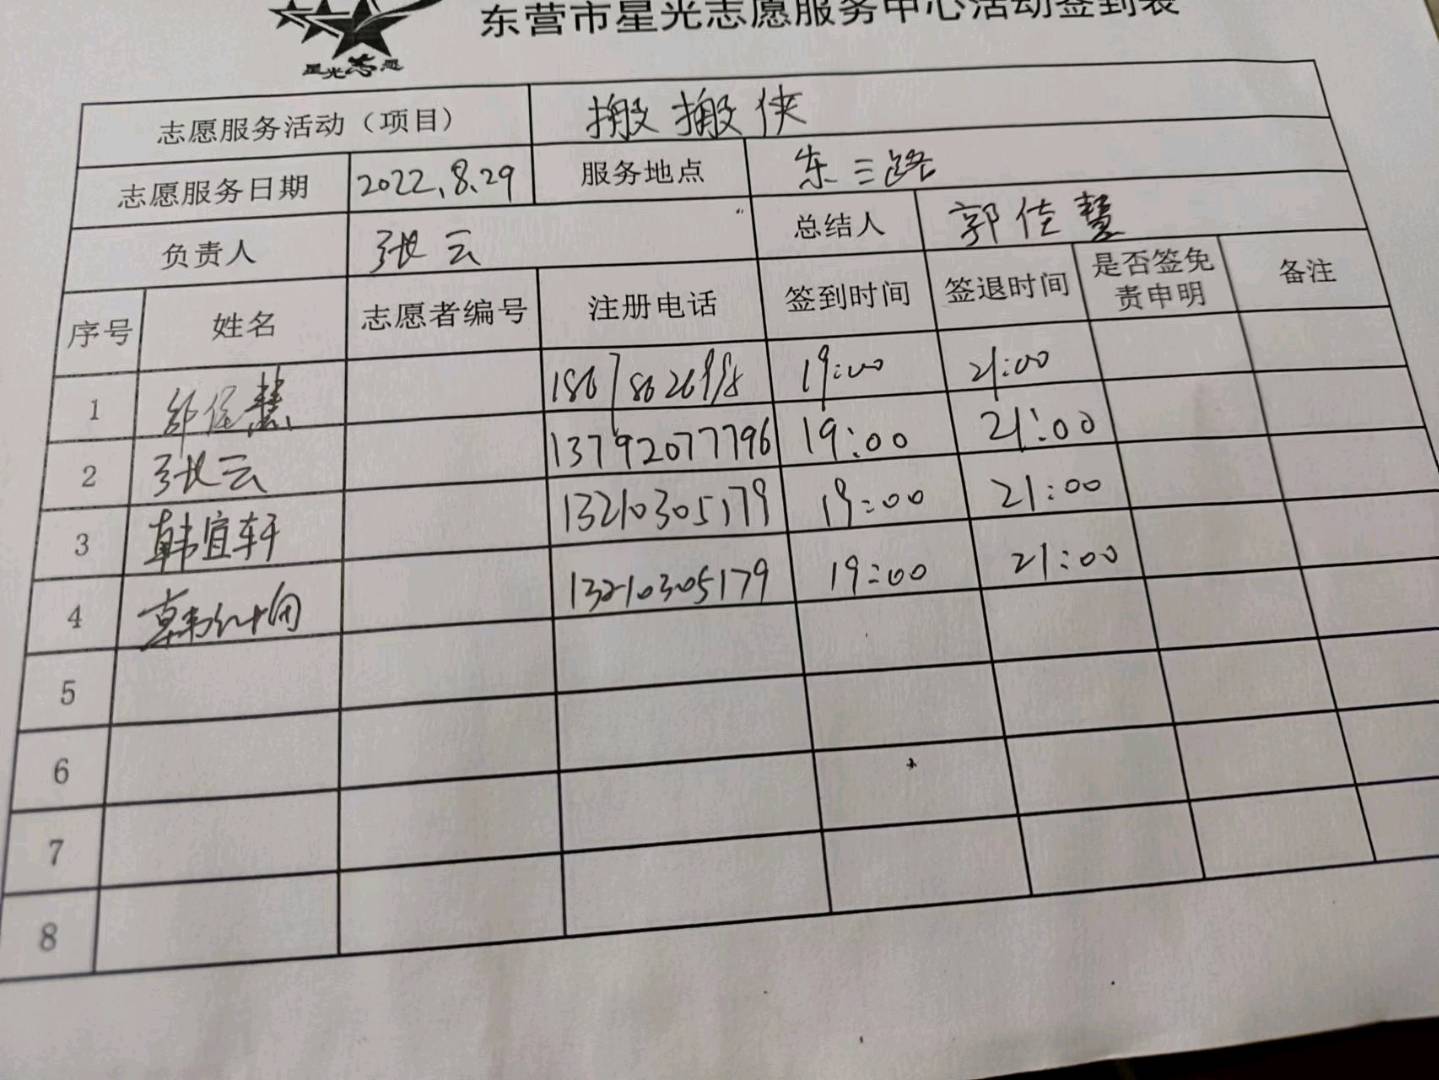 东营市星光志愿服务中心活动签到表
星光志愿
志愿服务活动（项目） 搬搬侠
志愿服务日期 2022.8.29 服务地点 东三路
负责人 张云 总结人 郭佳慧
序号 姓名 志愿者编号 注册电话 签到时间 签退时间 是否签免责申明 备注
1 郭佳慧 19:00 21:00
2 张云 13792077796 19:00 21:00
3 韩宜轩 13210305179 19:00 21:00
4 13210305179 19:00 21:00
5
6
7
8